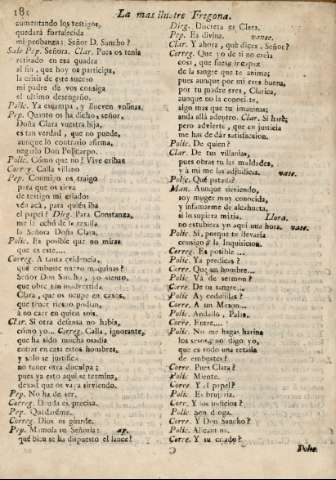 182
La mas ilustre Fregona.
cimentando los testigos,
quedará fortalecida
mi probanza: Señor D. Sancho?
Sale Pep. Señora. Clar. Pues os tenia
retirado en esa quadra
al fin, que hoy os participa,
la crisis de este suceso
mi padre de vos consiga
el ultimo desengaño.
Polic. Ya escampa, y llueven
Pep. Quanto os ha dicho, señor,
Doña Clara vuestra hija,
es tan verdad, que no puede,
aunque lo contrario afirma,
negarlo Don Policarpo.
Polic. Cómo que no? Vive cribas
Corr y. Calla villano
Pep. Conmigo es traigo
para que os sirva
de testigo mi criado
ve acá, para quién iba
el papel? Dieg. Para Constanza,
me le echó de la rexilla
la Señora Doña Clara.
Polic. Es posible que no miras
que es este....
Correg. A tanta evidencia,
qué embuste habrá maquinas?
Señor Don Sancho, yo siento,
que obre sin inadvertida
Clara, que os ocupe en casos,
que tener riesgo podian,
á no caer en quien sois.
Clar. Si otra defensa no habia,
cómo yo... Correg. Calla, ignorante,
que ha sido mucha osadia
entrar en casa estos hombres,
y solo se justifica
no tener otra disculpa;
pues ya esto aqui se termina,
dexad que os vaya sirviendo.
Pep. No ha de ser.
Correg. Deuda es precisa.
Pep. Quedaréme.
Correg. Dios os guarde.
Pep. Mamola su Señoria: ap.
qué bien se ha dispuesto el lance!
Dieg. Discreta es Clara.
Pep. Es divina. vanse.
Clar. Y ahora, qué dices, Señor?
Correg. Que yo de tí no creía
cosa, que fuese
de la sangre que te anima;
pues aunque por mí no eres buena,
por tu padre eres, Clarica,
aunque no la conociste,
algo mas que tu imaginas;
anda allá adentro. Clar. Si haré;
pero advierte, que en justicia
me has de dar satisfaccion.
Polic. De quien?
Clar. De tus villanías,
pues obras tu las maldades,
y á mí me las adjudicas. vase.
Polic. Qué patada!
Man. Aunque sirviendo,
soy muger muy conocida,
y infamarme de alcahueta,
si lo supiera mi tia. Llora.
no estubiera yo aqui una hora. vase.
Polic. Sí, porque te llevaria
consigo á la Inquisicion.
Correg. Es posible ...
Polic. Ya predica?
Corre. Que un hombre...
Polic. Va de sermon?
Corre. De tu sangre...
Polic. Ay cedulillas?
Corre. A un Meson...
Polic. Andallo, Palva.
Corre. Entre....
Polic. No me hagas harina
los sesos; no digo yo,
que es todo una retaila
de embustes?
Corre. Pues Clara?
Polic. Miente.
Corre. Y el papel?
Polic. Es brujeria.
Corr. Y los indicios?
Polic. Son droga.
Corre. Y Don Sancho?
Polic.
Corre. Y su criado?
Polic.